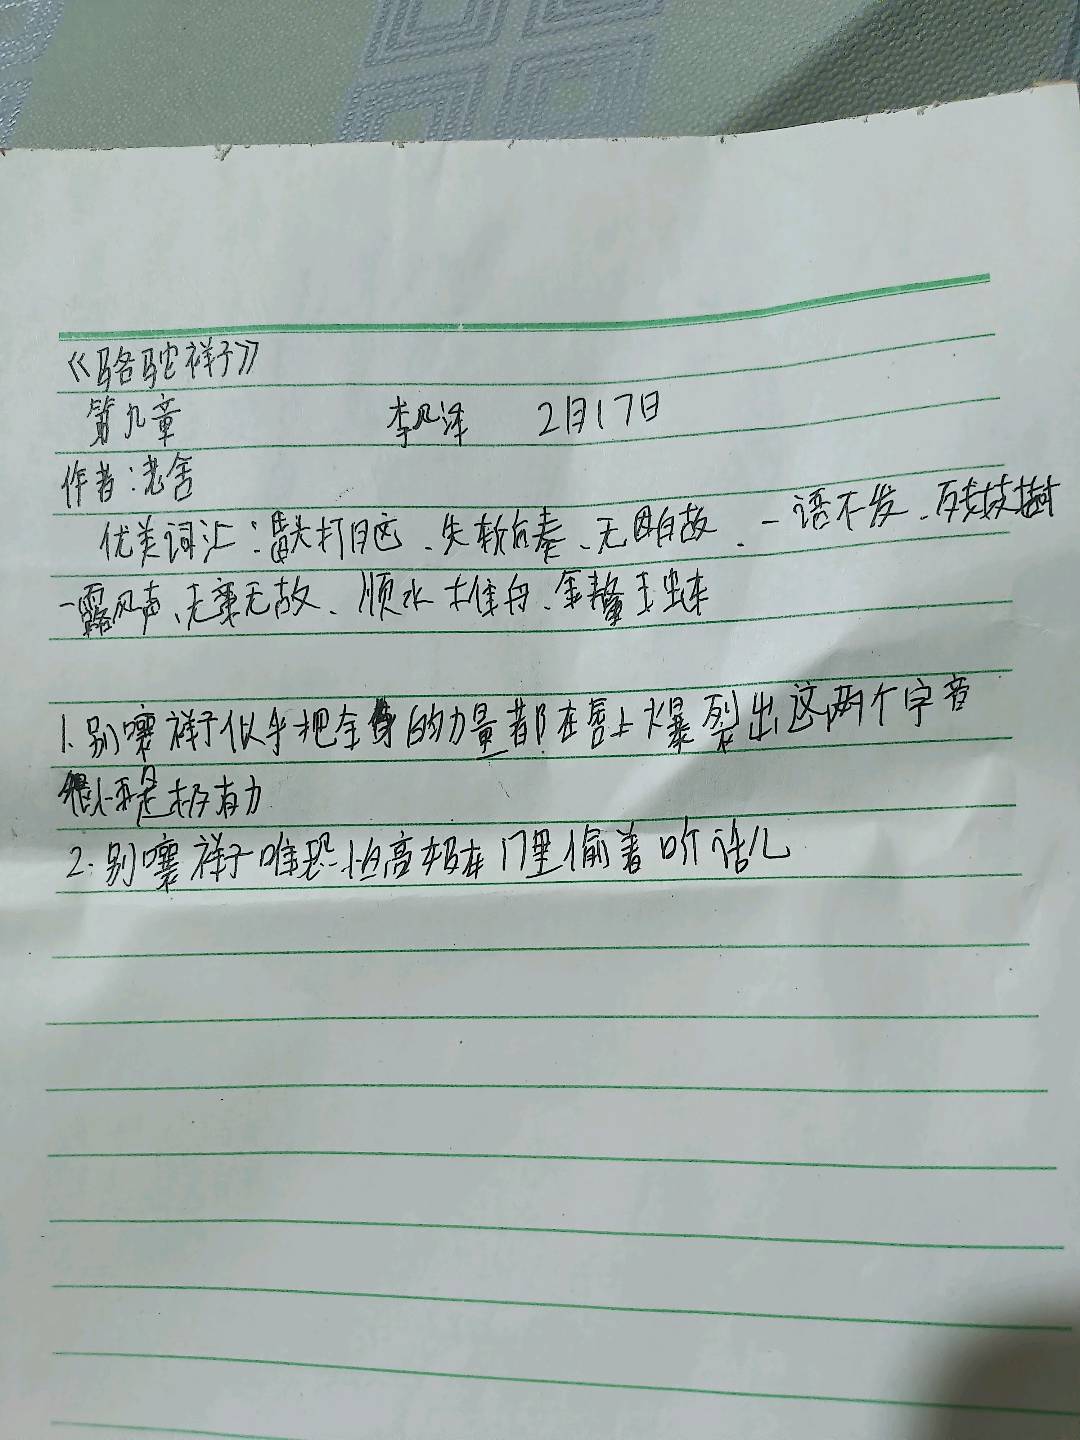 《骆驼祥子》
第九章 李风泽 2月17日
作者:老舍
优美词汇:、先斩后奏、无因自故、一语不发、
一露风声、无弃无故、顺水推舟、金鳌玉蝀
1.别嚷祥子似乎把全身的力量都在唇上爆裂出这两个字音
很小可是极有力
2.别嚷祥子唯恐怕高妈在门里偷着听话儿